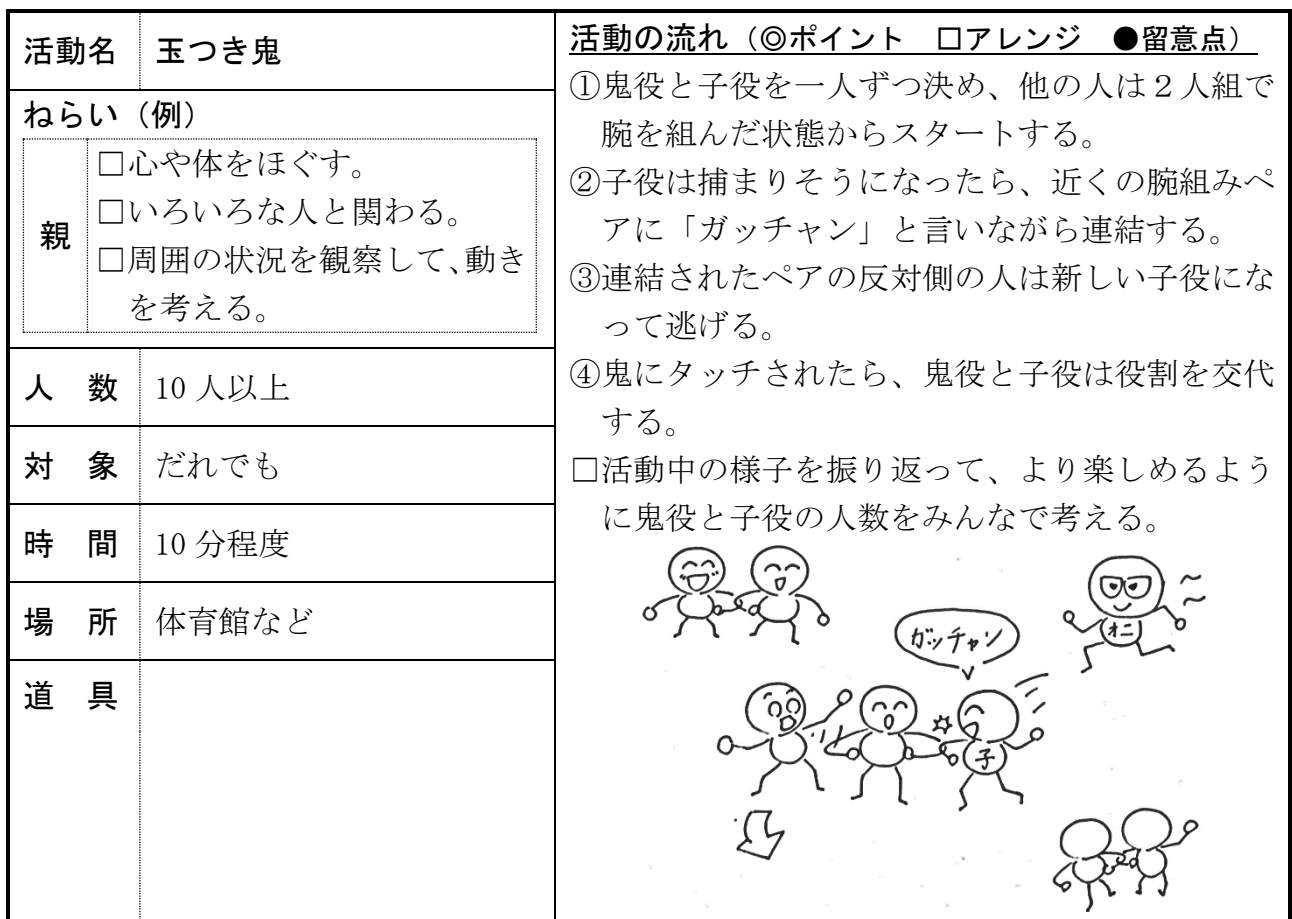 活動名 玉つき鬼
ねらい（例）
親
□心や体をほぐす。
□いろいろな人と関わる。
□周囲の状況を観察して、動き
を考える。
人 数 10 人以上
対 象 だれでも
時 間 10 分程度
場 所 体育館など
道 具
活動の流れ（◎ポイント □アレンジ ●留意点）
①鬼役と子役を一人ずつ決め、他の人は２人組で
腕を組んだ状態からスタートする。
②子役は捕まりそうになったら、近くの腕組みペ
アに「ガッチャン」と言いながら連結する。
③連結されたペアの反対側の人は新しい子役にな
って逃げる。
④鬼にタッチされたら、鬼役と子役は役割を交代
する。
□活動中の様子を振り返って、より楽しめるよう
に鬼役と子役の人数をみんなで考える。
オニ
ガッチャン
子